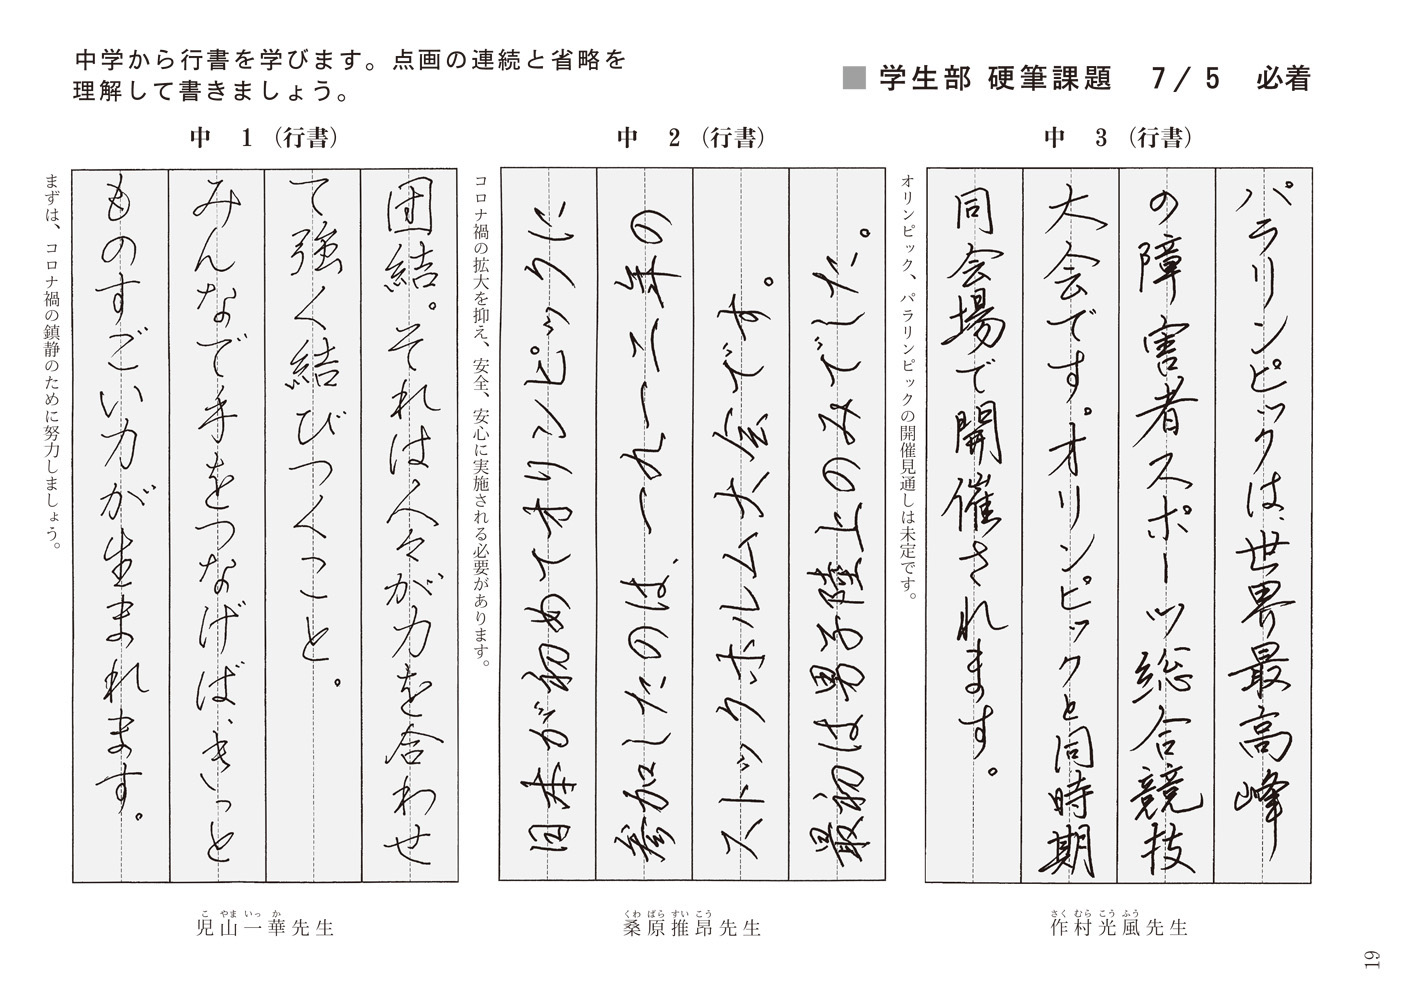 中学から行書を学びます。点画の連続と省略を
理解して書きましょう。
■ 学生部 硬筆課題 7/5 必着
中 1 (行書)
団結。それは人々が力を合わせ
て強く結びつくこと。
みんなで手をつなげば、きっと
ものすごい力が生まれます。
まずは、コロナ禍の鎮静のために努力しましょう。
こ やま いっ か
児山一華先生
中 2 (行書)
日本が初めてオリンピックに
参加したのは、一九一二年の
ストックホルム大会です。
最初は男子陸上のみでした。
コロナ禍の拡大を抑え、安全、安心に実施される必要があります。
くわ ばら すい こう
桑原推昂先生
中 3 (行書)
パラリンピックは、世界最高峰
の障害者スポーツ総合競技
大会です。オリンピックと同時期
同会場で開催されます。
オリンピック、パラリンピックの開催見通しは未定です。
さく むら こう ふう
作村光風先生
19